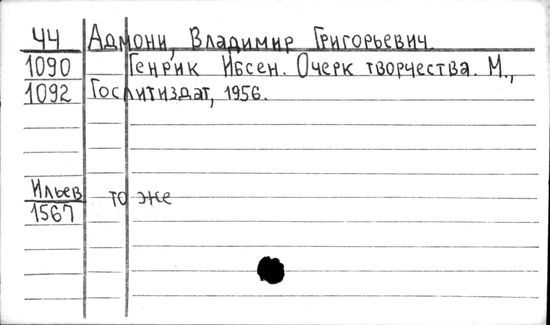 ЧЧ Адмони, Владимир Григорьевич.
1090 Генрик Ибсен. Очерк творчества. М.,
1092 Гослитиздат, 1956.
Ильев то же
1567